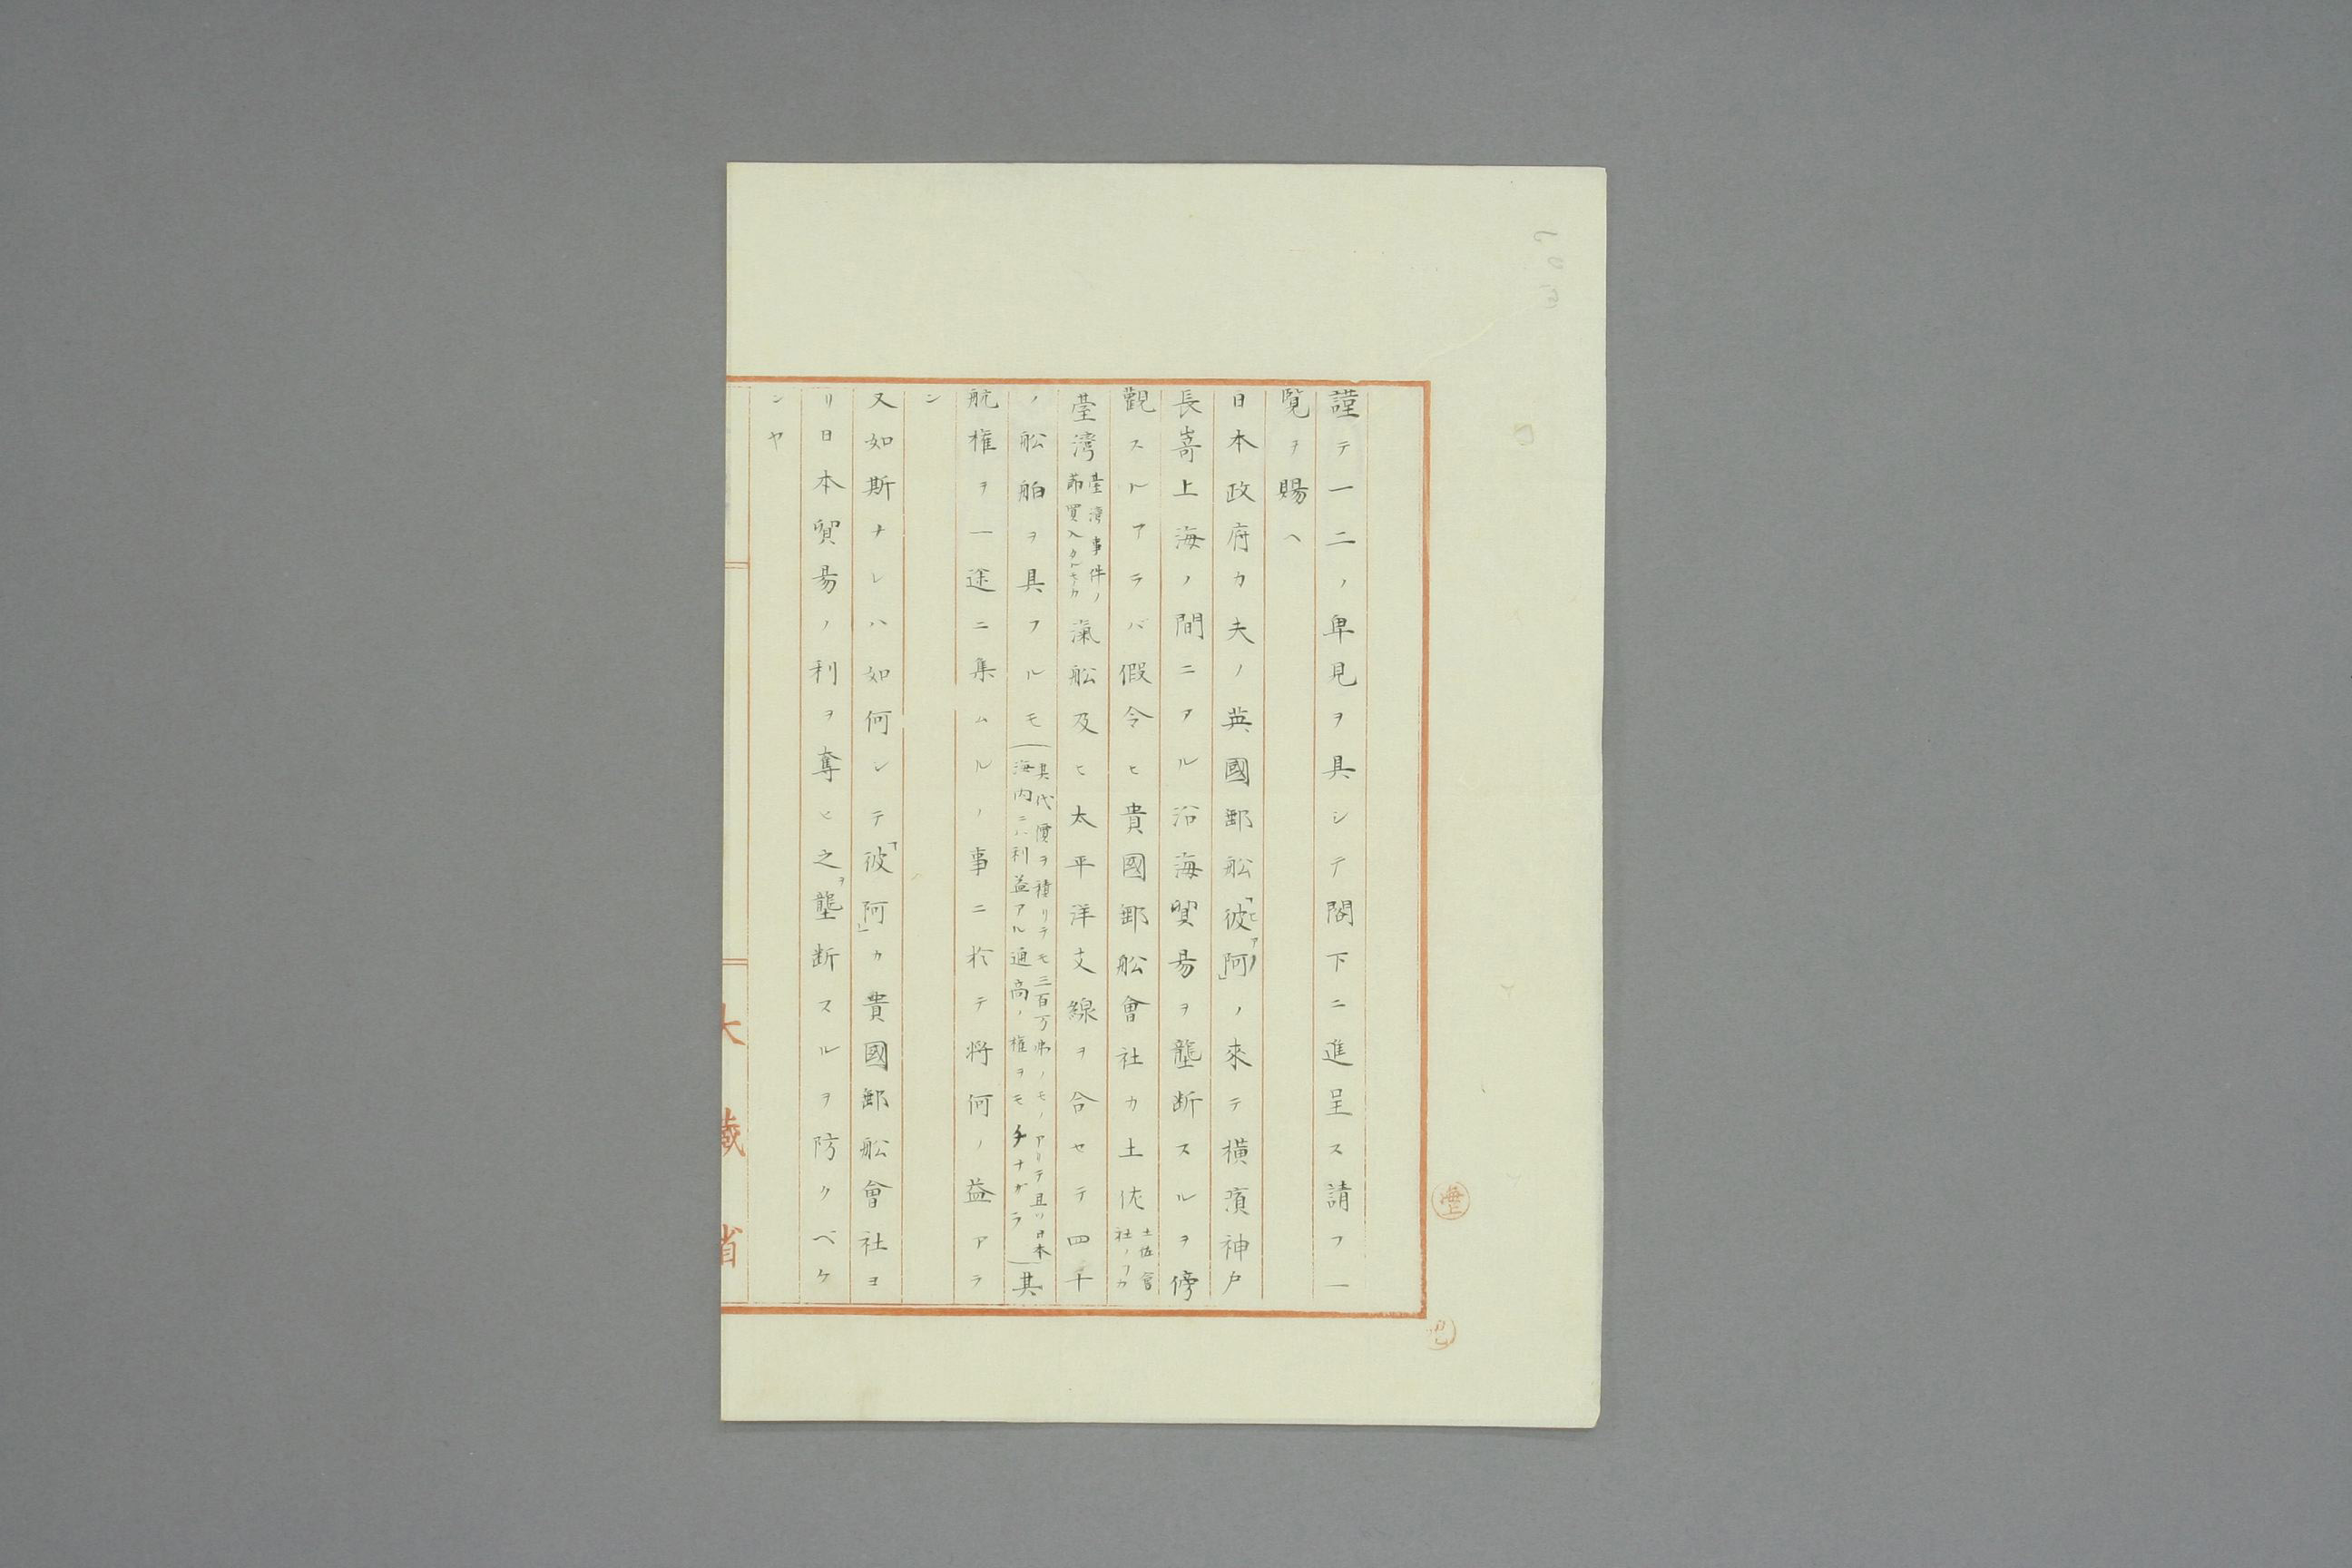 謹テ一二ノ卑見ヲ具シテ閤下ニ進呈ス請フ一
覧ヲ賜ヘ
日本政府カ夫ノ英國郵舩「彼阿」ノ來テ橫濱神戸
ヒアー
長嵜上海ノ間ニアル沿海貿昜ヲ壟断スルヲ傍
觀スルアラバ假令ヒ貴國郵舩會社カ土佐
土佐會
社ノフカ
臺灣
臺灣事件ノ
節買入タルモノカ
滊舩及ヒ太平洋支線ヲ合セテ四千
ノ舩舶ヲ具フルモ
(其代價ヲ積リテモ三百万弗ノモノアリテ且ツ日本
海内ニハ利益アル通商ノ権ヲモチナガラ)
其
航権ヲ一途ニ集ムルノ事ニ於テ将何ノ益アラ
ン
又如斯ナレハ如何シテ「彼阿」カ貴國郵舩會社ヨ
リ日本貿昜ノ利ヲ奪ヒ之ヲ壟断スルヲ防クベケ
ンヤ
大藏省